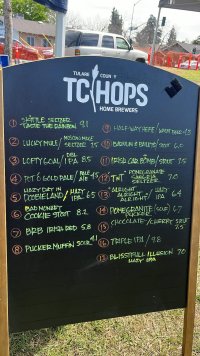 TULARE COUNTY
TCHOPS
HOME BREWERS
1 SKITTLE SELTZER
TASTE THE RAINBOW 9.1
2 LUCKY MULE / MOSCOW MULE
SELTZER 7.5
3 LOFTY GOAL / IPA 8.5
4 PCT 6 GOLD PALE / PALE
ALE 4.5
5 HAZY DAY IN
DOOBIELAND / HAZY
IPA 6.5
6 BAD MONKEY
COOKIE STOUT 8.2
7 BRB IRISH RED 5.8
8 PUCKER MUFFIN SOUR 4.1
9 HALF WAY HERE /
10 STOUT 6.0
11 IRISH CAR BOMB / STOUT 7.5
12 TNT POMEGRANATE
SELTZER 7.0
13 "ALRIGHT
ALRIGHT" / HAZY
IPA 6.4
14 POMEGRANITE / SOUR 6.7
PUCKER
15 CHOCOLATE / CHERRY STOUT
16 TRIPLE IPA / 9.8
BLISSFULL ILLUSION 7.0
HAZY IPA